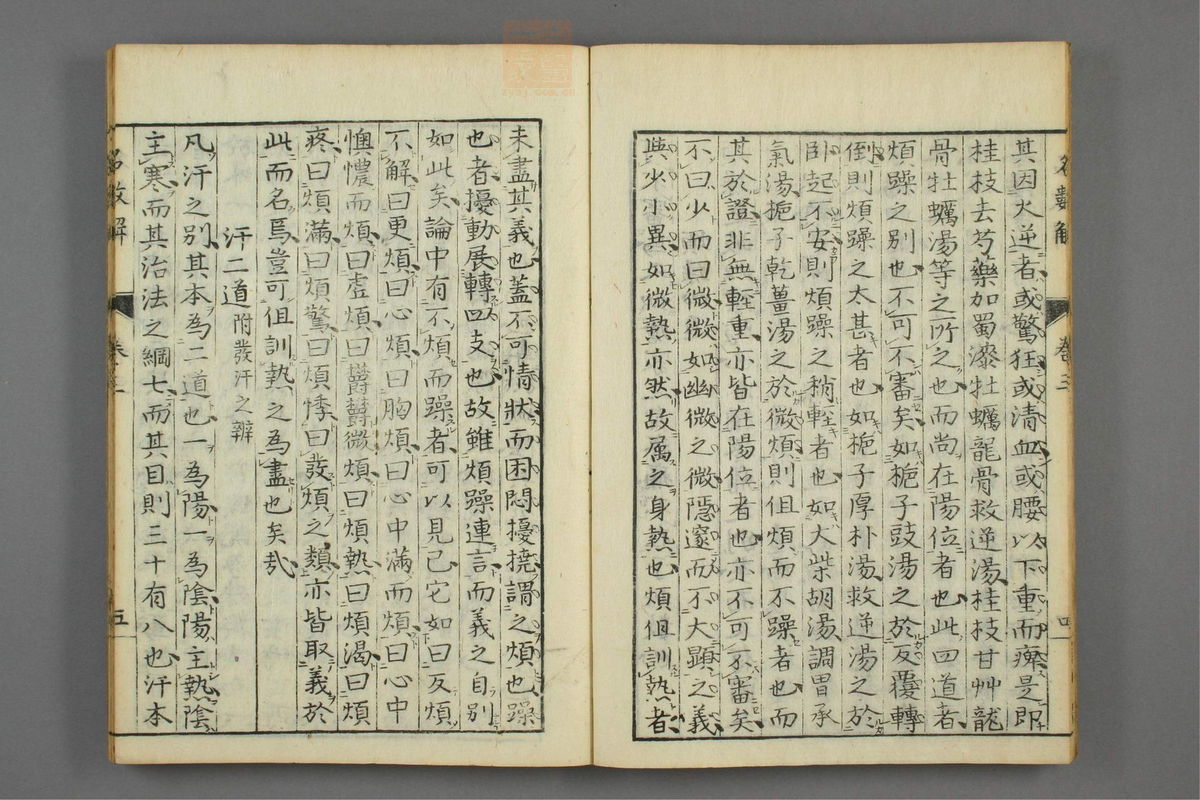 其因火逆者或驚狂或清血或腰以下重而痺是即
桂枝去芍藥加蜀漆牡蠣龍骨救逆湯桂枝甘艸龍
骨牡蠣湯等之所之也而尚在陽位者也此四道者
煩躁之別也不可不審矣如梔子豉湯之於反覆轉
倒則煩躁之太甚者也如梔子厚朴湯救逆湯之於
臥起不安則煩躁之稍輕者也如大柴胡湯調胃承
氣湯梔子乾薑湯之於微煩則但煩而不躁者也而
其於證非無輕重亦皆在陽位者也亦不可不審矣
不曰少而曰微微如幽微之微隱邃而不大顯之義
與少小異如微熱亦然故属之身熱也煩但訓熱者
未盡其義也蓋不可情狀而困悶擾撓謂之煩也躁
也者擾動展轉四支也故雖煩躁連言而義之自別
如此矣論中有不煩而躁者可以見已它如曰反煩
不解曰更煩曰心煩曰胸煩曰心中滿而煩曰心中
懊憹而煩曰虛煩曰欝欝微煩曰煩熱曰煩渴曰煩
疼曰煩滿曰煩驚曰煩悸曰發煩之類亦皆取義於
此而名焉豈可但訓熱之為盡也矣哉
汗二道附發汗之辨
凡汗之別其本為二道也一為陽一為陰陽主熱陰
主寒而其治法之綱七而其目則三十有八也汗本
名數解
卷三
四
名數解
卷三
五